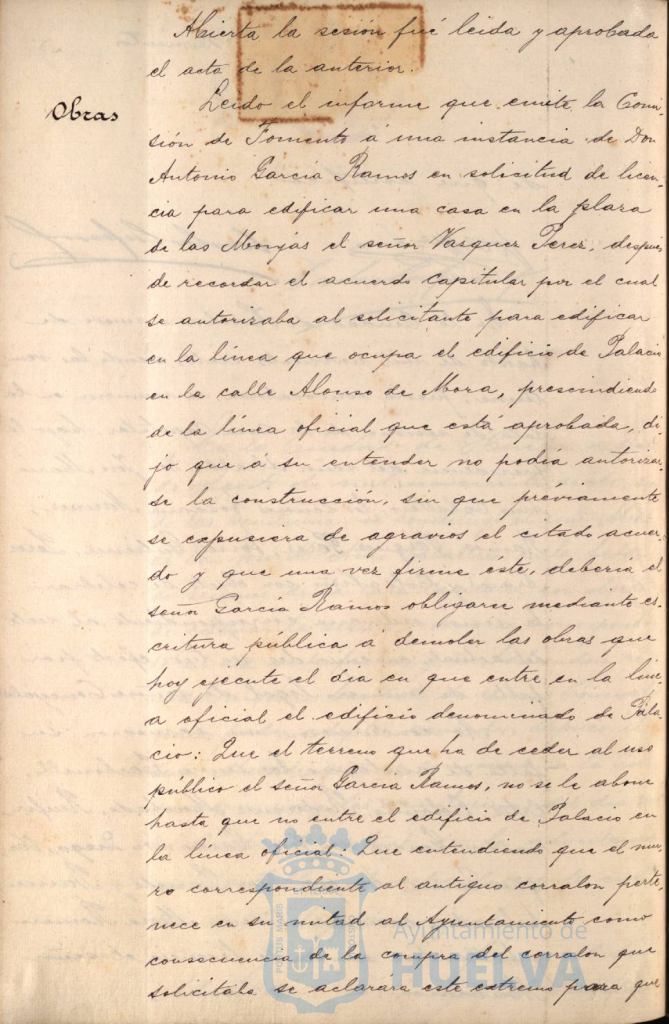 Abierta la sesión fué leida y aprobada
el acta de la anterior.
Obras
Leido el informe que emite la Comi-
sión de Fomento á una instancia de Don
Antonio García Ramos en solicitud de licen-
cia para edificar una casa en la plaza
de las Monjas el señor Vasquez Perez, despues
de recordar el acuerdo capitular por el cual
se autorizaba al solicitante para edificar
en la línea que ocupa el edificio de Palacio
en la calle Alonso de Mora, prescindiendo
de la línea oficial que está aprobada, di-
jo que á su entender no podía autorizar-
se la construcción, sin que préviamente
se expusiera de agravios el citado acuer-
do y que una vez firme éste, debería el
señor García Ramos obligarse mediante es-
critura pública á demoler las obras que
hoy ejecute el dia en que entre en la líne-
a oficial el edificio denominado de Pala-
cio: Que el terreno que ha de ceder al uso
público el señor García Ramos, no se le abone
hasta que no entre el edificio de Palacio en
la línea oficial: Que entendiendo que el mu-
ro correspondiente al antiguo corralon perte-
nece en su mitad al Ayuntamiento como
consecuencia de la compra del corralon que
solicitaba se aclarara este extremo para que
Ayuntamiento de
HUELVA